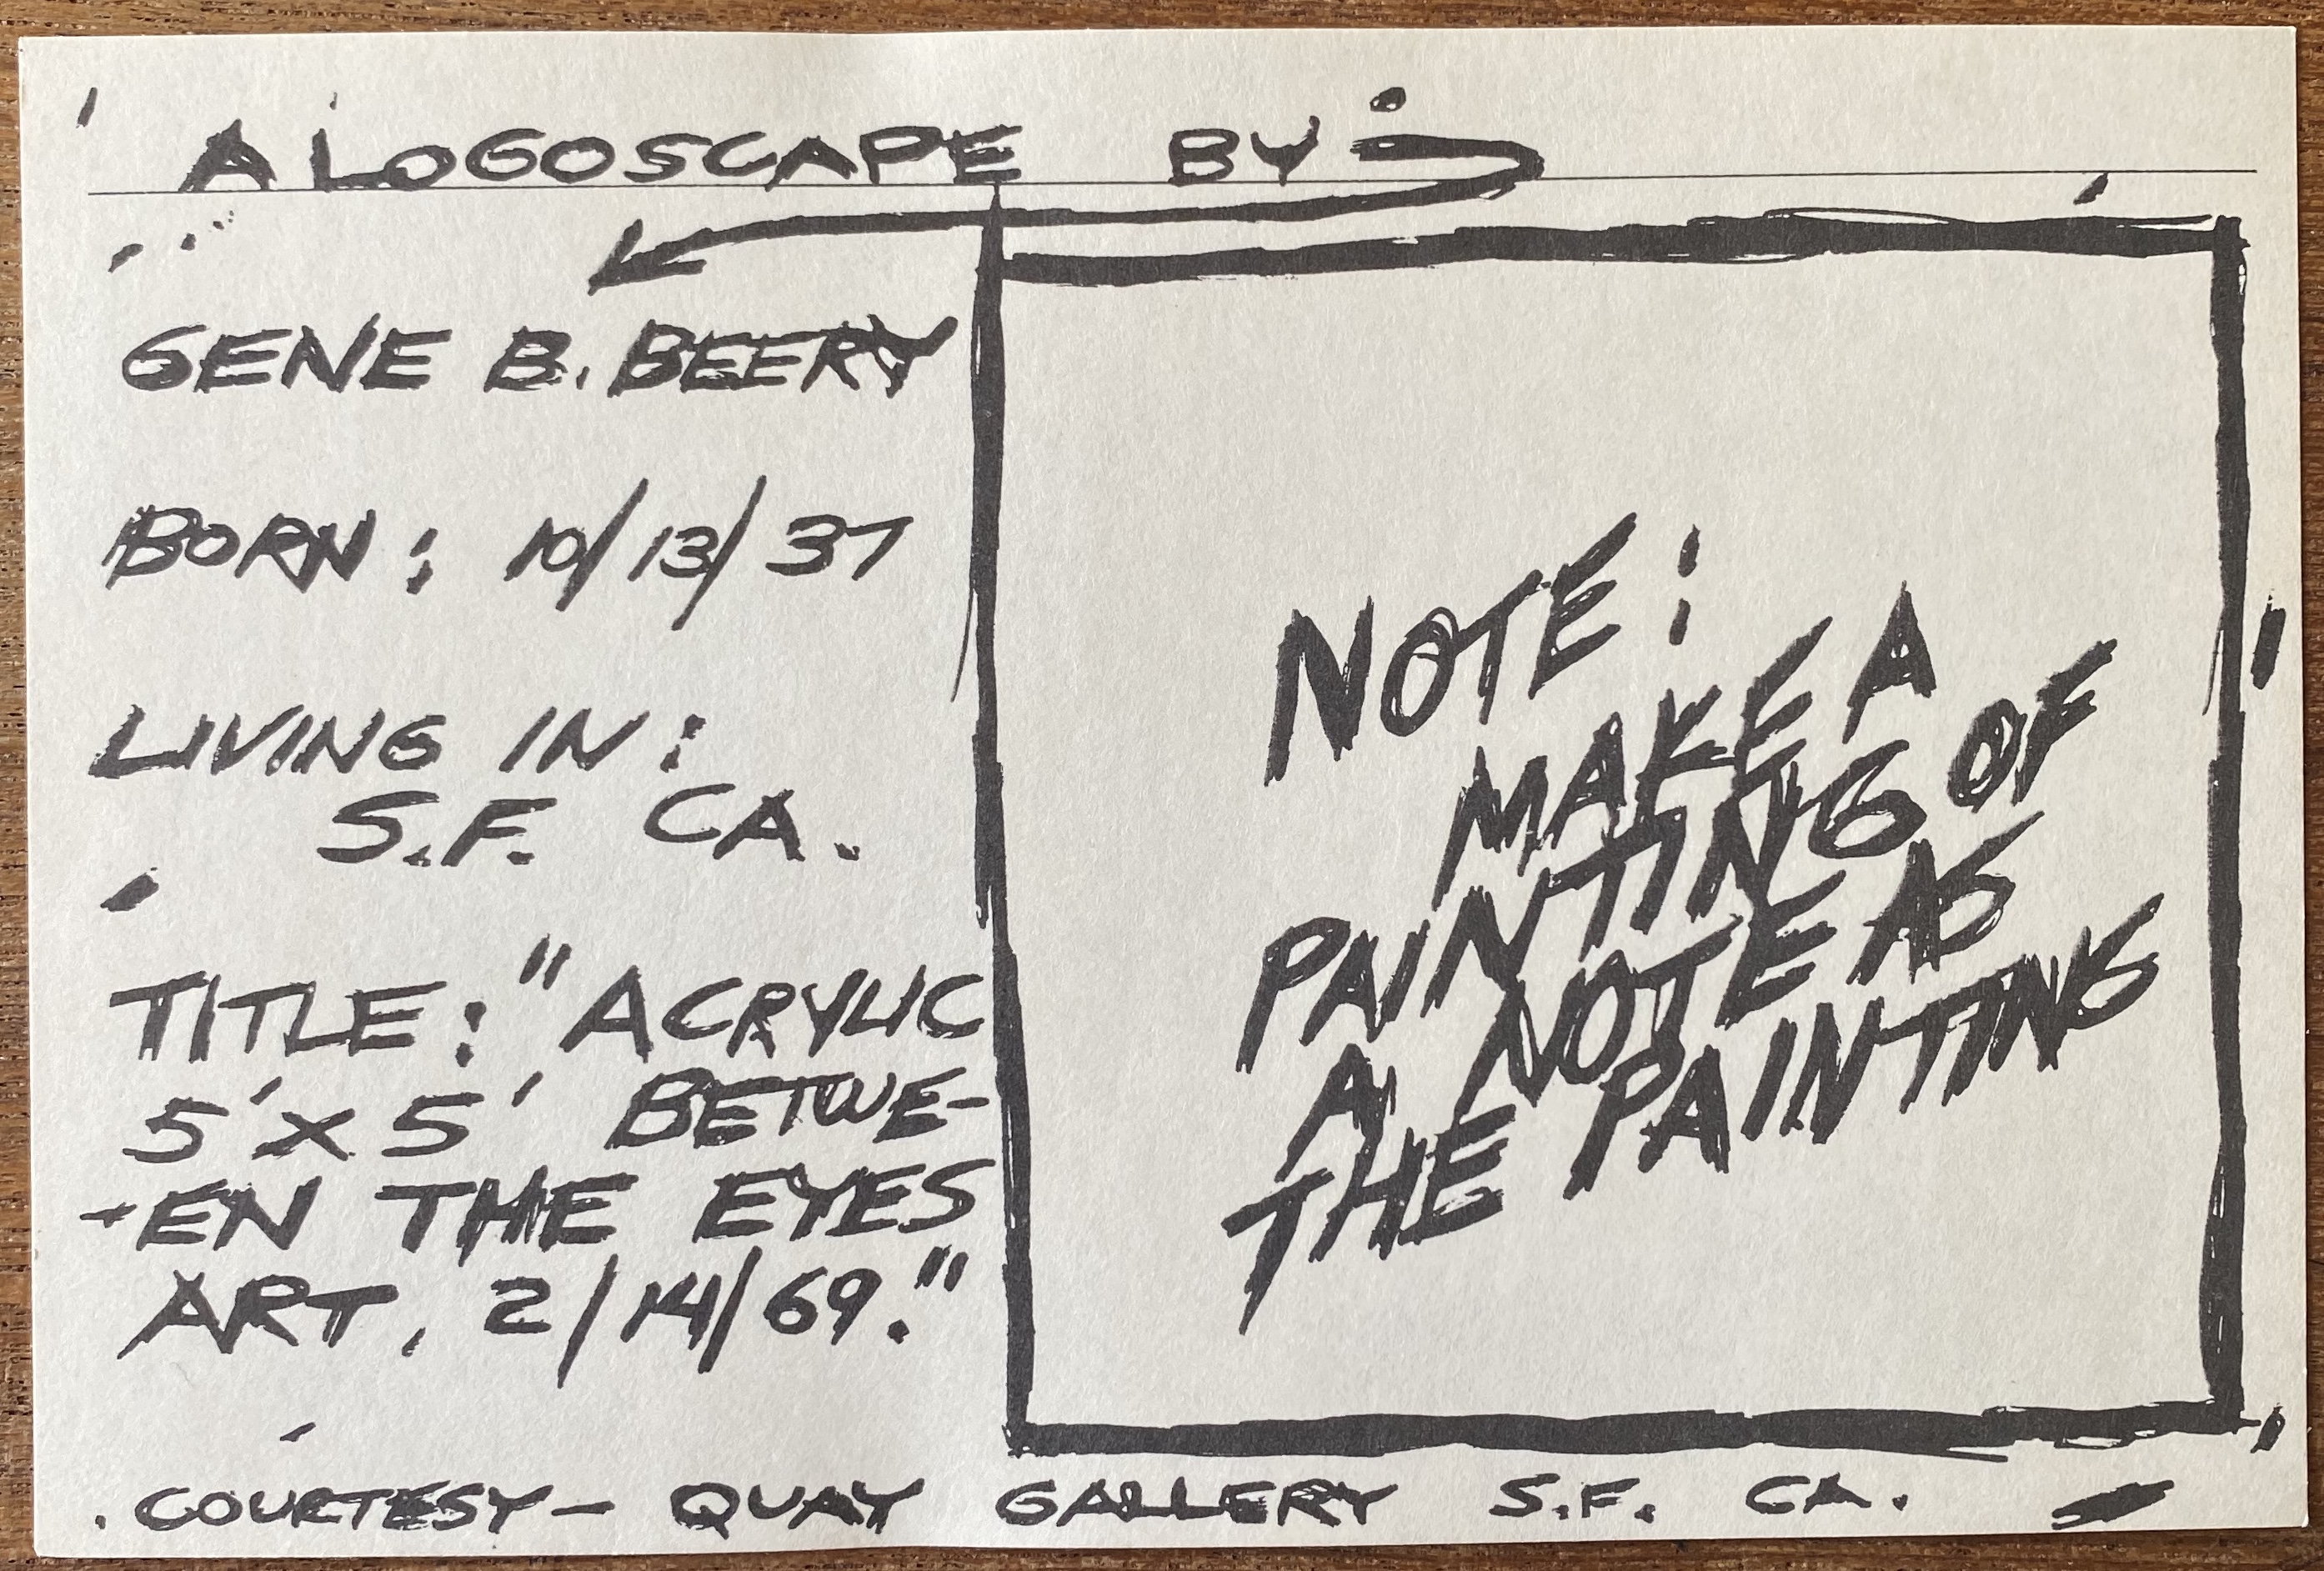 A LOGOSCAPE BY:
GENE B. BEERY
BORN: 10/13/37
LIVING IN:
S.F. CA.
TITLE: "ACRYLIC
5'x5' BETWE-
-EN THE EYES
ART, 2/14/69."
NOTE:
MAKE A
PAINTING OF
A NOTE AS
THE PAINTING
COURTESY- QUAY GALLERY S.F. CA.